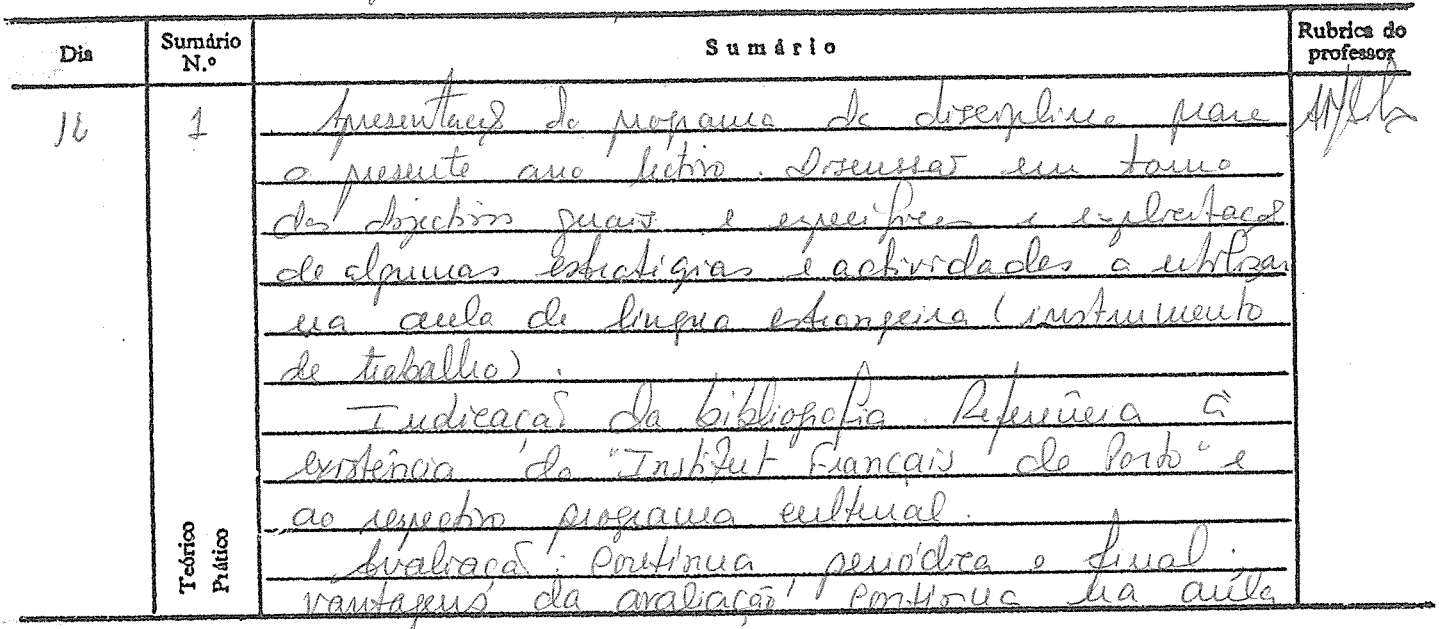 Dia Sumário N.º Sumário Rubrica do professor
1 Apresentação do programa da disciplina para
o presente ano lectivo. Discussão em torno
dos objectivos gerais e específicos e explicitação
de algumas estratégias e actividades a utilizar
na aula de língua estrangeira (instrumento
de trabalho).
Indicação da bibliografia. Referência à
existência do "Institut Français de Porto" e
ao respectivo programa cultural.
Avaliação: Contínua periódica e final.
Vantagens da avaliação contínua na aula
Teórico
Prático